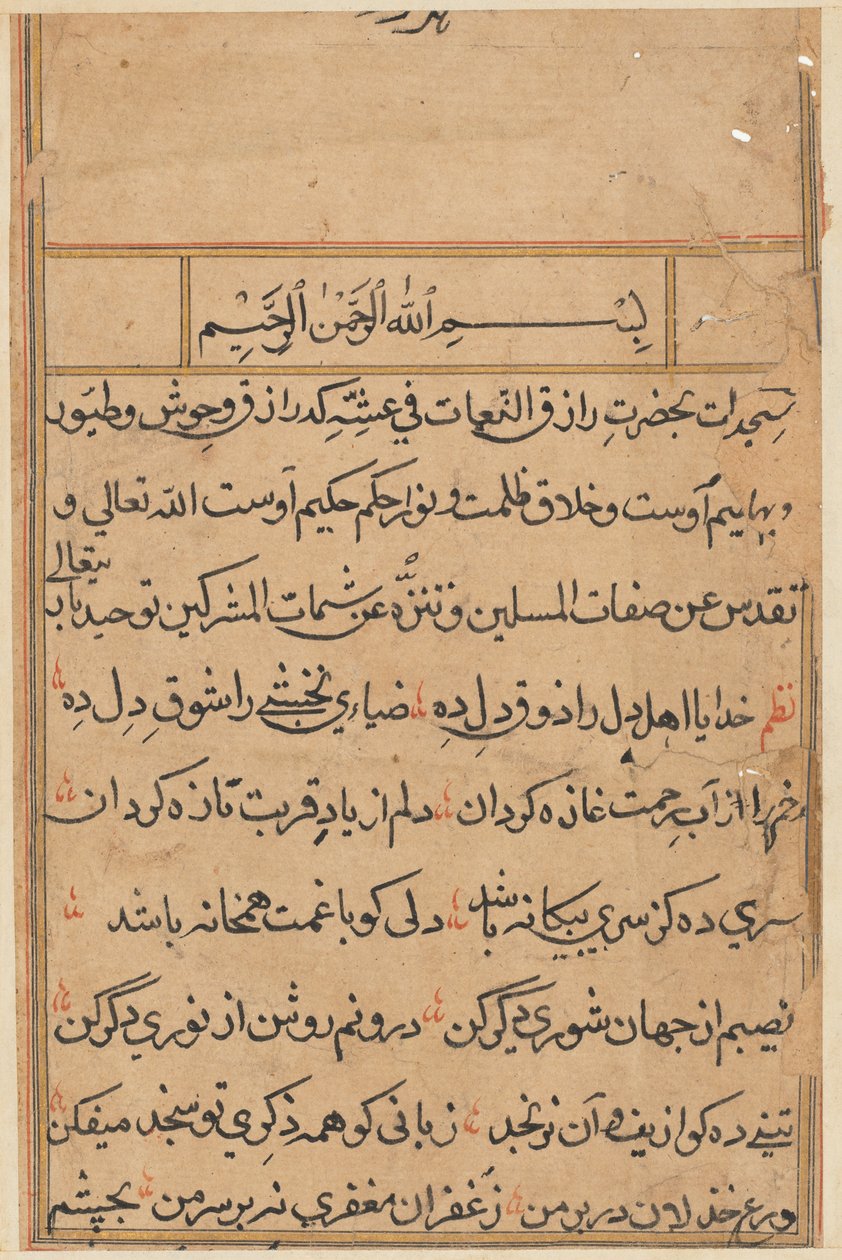 بسم الله الرحمن الرحيم
سجدات بحضرتِ رازق النعمات في عشتهِ كه رازق وحوش و طيور
و بهايم اوست و خلاق ظلمت و نوار حكم حكيم اوست الله تعالي و
تقدس عن صفات المسلين و تنزه عن شمات المشركين توحيد باب
يتعالى
نظم خدايا اهل دل را ذوق دلِ دِه ضياءي نخشبي را شوقِ دِل دِه
رخم را از آب رحمت غازه كردان دلم از يادِ قربت تازه كردان
سري ده كز سري بيكانه باشد دلى كو با غمت همخانه باشد
نصيبم از جهان شوري ديگر كن درونم روشن از نوري دگر كن
تني ده كو از يف آن نرنجد زبانى كو همه ذكري تو سنجد ميفكن
درع خذلان در بر من ز غفران مغفري نه بر سر من بچشم